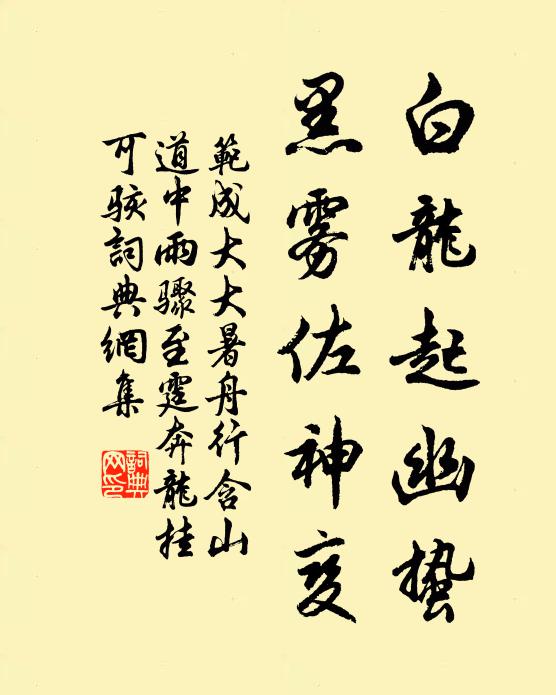 白龍起幽蟄
黑雾佐神变
範成大大暑舟行含山
道中雨骤至霆奔龍挂
可骇詞典網集
詞典網印